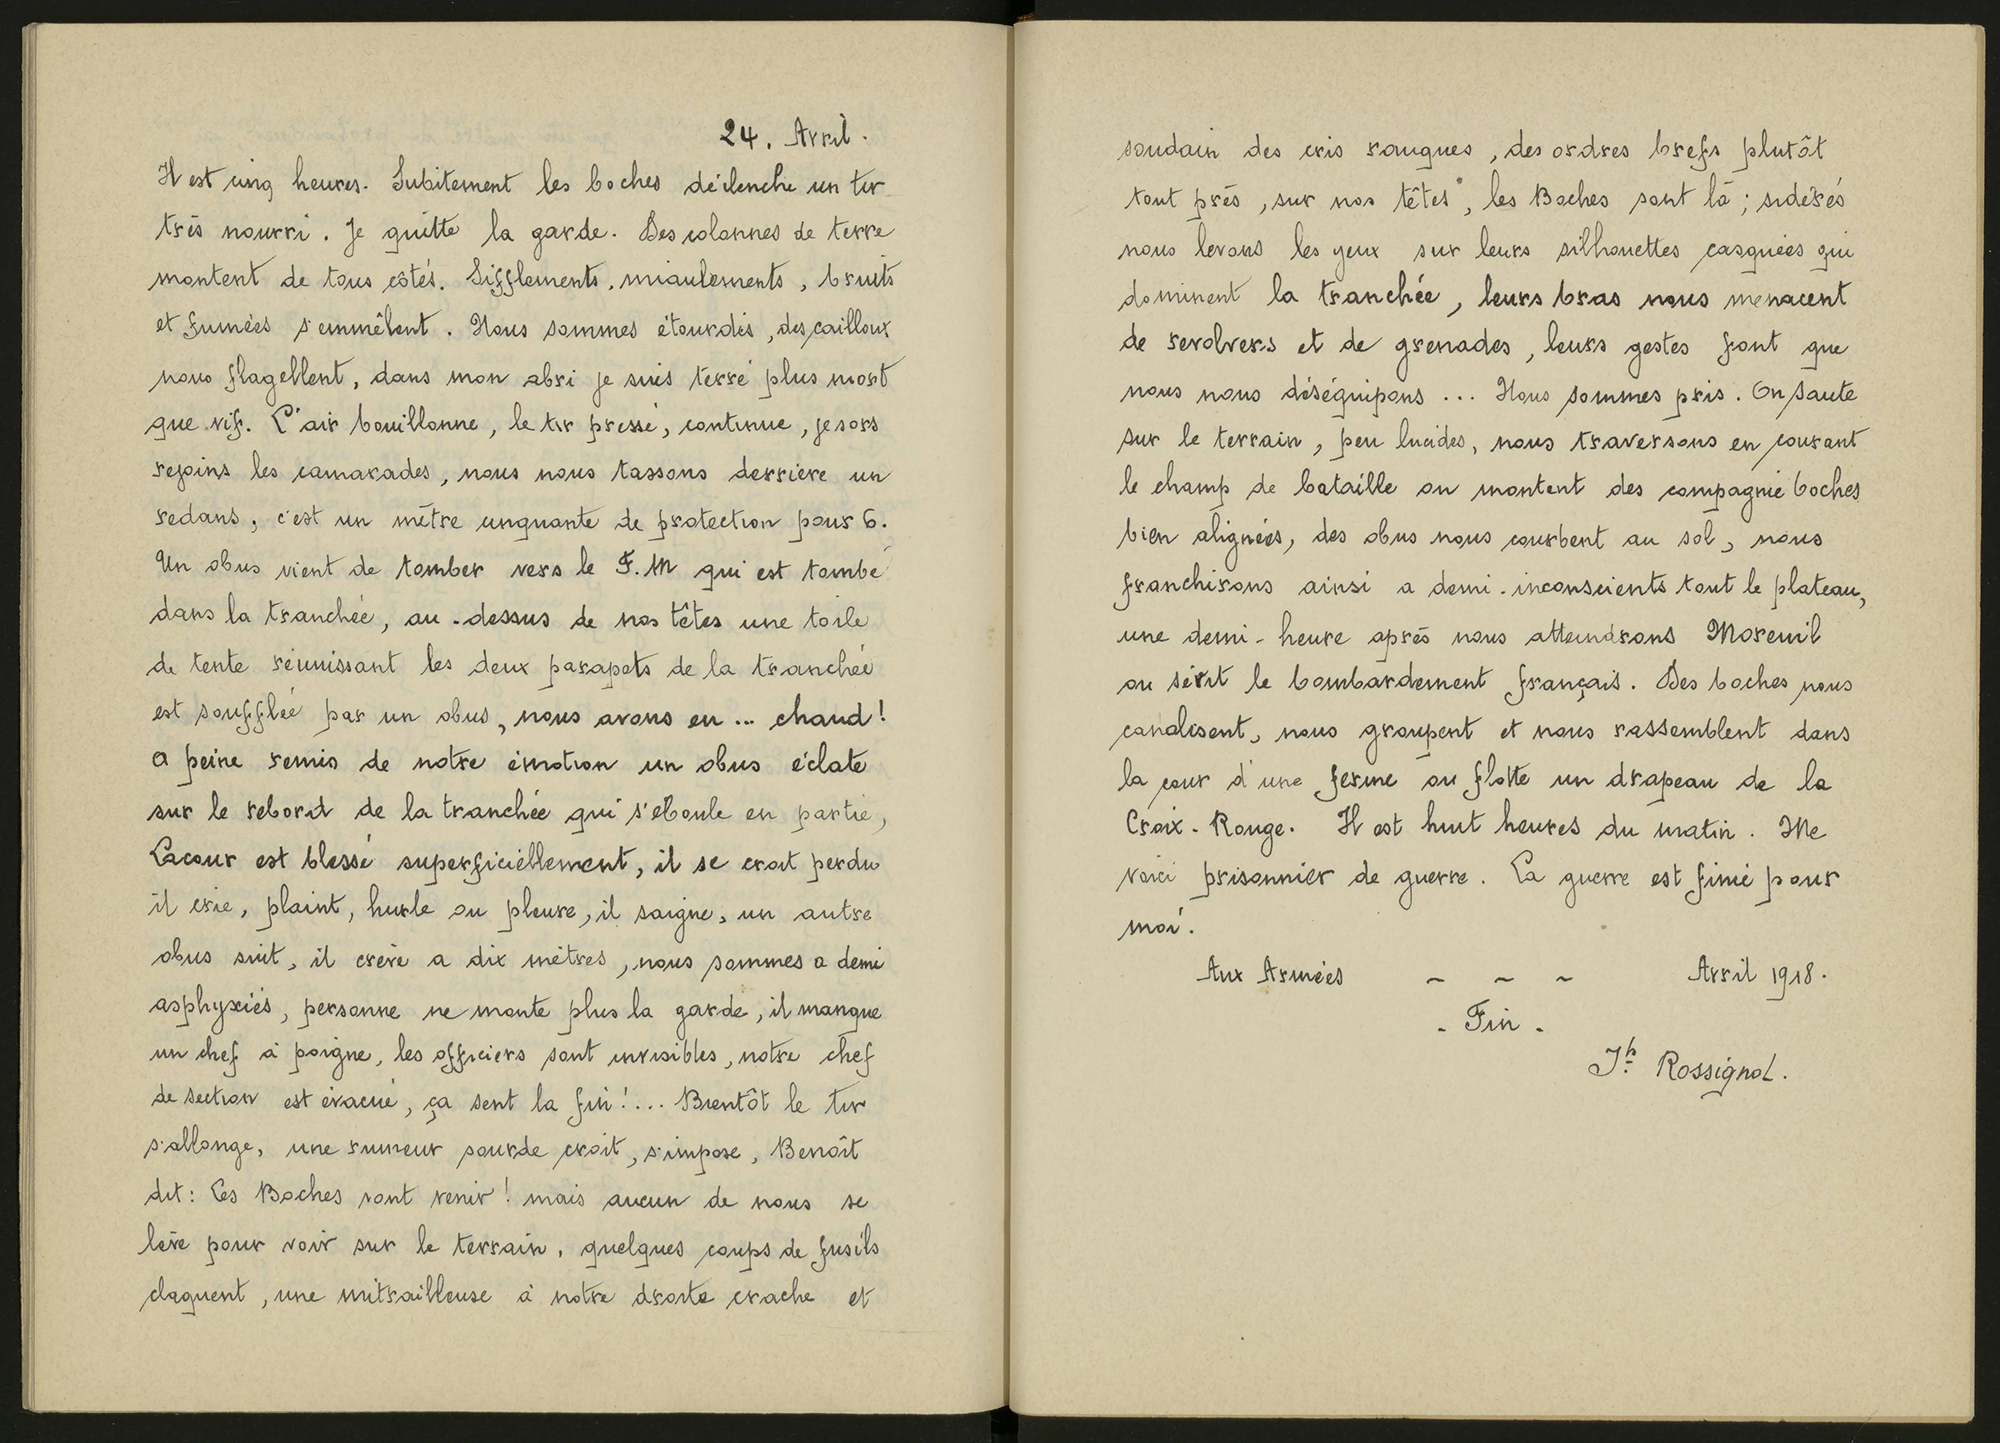 24. Avril.
Il est cinq heures. Subitement les boches déclenche un tir
très nourri. Je quitte la garde. Des colonnes de terre
montent de tous côtés. Sifflements, miaulements, bruits
et fumées s'emmêlent. Nous sommes étourdis, des cailloux
nous flagellent, dans mon abri je suis terré plus mort
que vif. L'air bouillonne, le tir pressé, continue, je sors
rejoins les camarades, nous nous tassons derrière un
redans, c'est un mètre cinquante de protection pour 6.
Un obus vient de tomber vers le F.M qui est tombé
dans la tranchée, au-dessus de nos têtes une toile
de tente réunissant les deux parapets de la tranchée
est soufflée par un obus, nous avons eu... chaud!
A peine remis de notre émotion un obus éclate
sur le rebord de la tranchée qui s'éboule en partie,
Lacour est blessé superficiellement, il se croit perdu
il crie, plaint, hurle ou pleure, il saigne, un autre
obus suit, il crève a dix mètres, nous sommes a demi
asphyxiés, personne ne monte plus la garde, il manque
un chef à poigne, les officiers sont invisibles, notre chef
de section est évacué, ça sent la fin!... Bientôt le tir
s'allonge, une rumeur sourde croit, s'impose, Benoît
dit: Les Boches vont venir! mais aucun de nous se
lève pour voir sur le terrain, quelques coups de fusils
claquent, une mitrailleuse à notre droite crache et
soudain des cris rauques, des ordres brefs plutôt
tout près, sur nos têtes, les Boches sont là; sidérés
nous levons les yeux sur leurs silhouettes casquées qui
dominent la tranchée, leurs bras nous menacent
de revolvers et de grenades, leurs gestes font que
nous nous déséquipons... Nous sommes pris. On saute
sur le terrain, peu lucides, nous traversons en courant
le champ de bataille ou montent des compagnie boches
bien alignées, des obus nous courbent au sol, nous
franchirons ainsi a demi-inconscients tout le plateau,
une demi-heure après nous atteindrons Moreuil
ou sévit le bombardement français. Des boches nous
canalisent, nous groupent et nous rassemblent dans
la cour d'une ferme ou flotte un drapeau de la
Croix-Rouge. Il est huit heures du matin. Me
voici prisonnier de guerre. La guerre est finie pour
moi.
Aux Armées - - - Avril 1918.
- Fin -
Jh Rossignol.